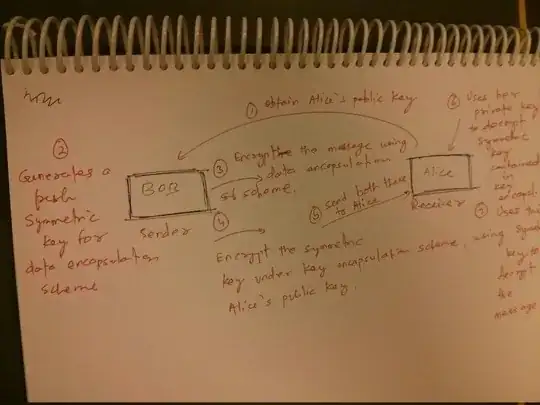 ① obtain Alice's public key
②
Generates a
fresh
Symmetric
key for
data encapsulation
scheme
BOB
Sender
③ Encrypts the message using
data encapsulation
scheme.
④
Encrypt the symmetric
key under key encapsulation scheme, using
Alice's public key.
⑤ send both these
to Alice
Alice
Receiver
⑥ Uses her
private key
to decrypt
symmetric
key
contained
in
key
encapsul.
⑦ Uses this
symm
key to
decrypt
the
message